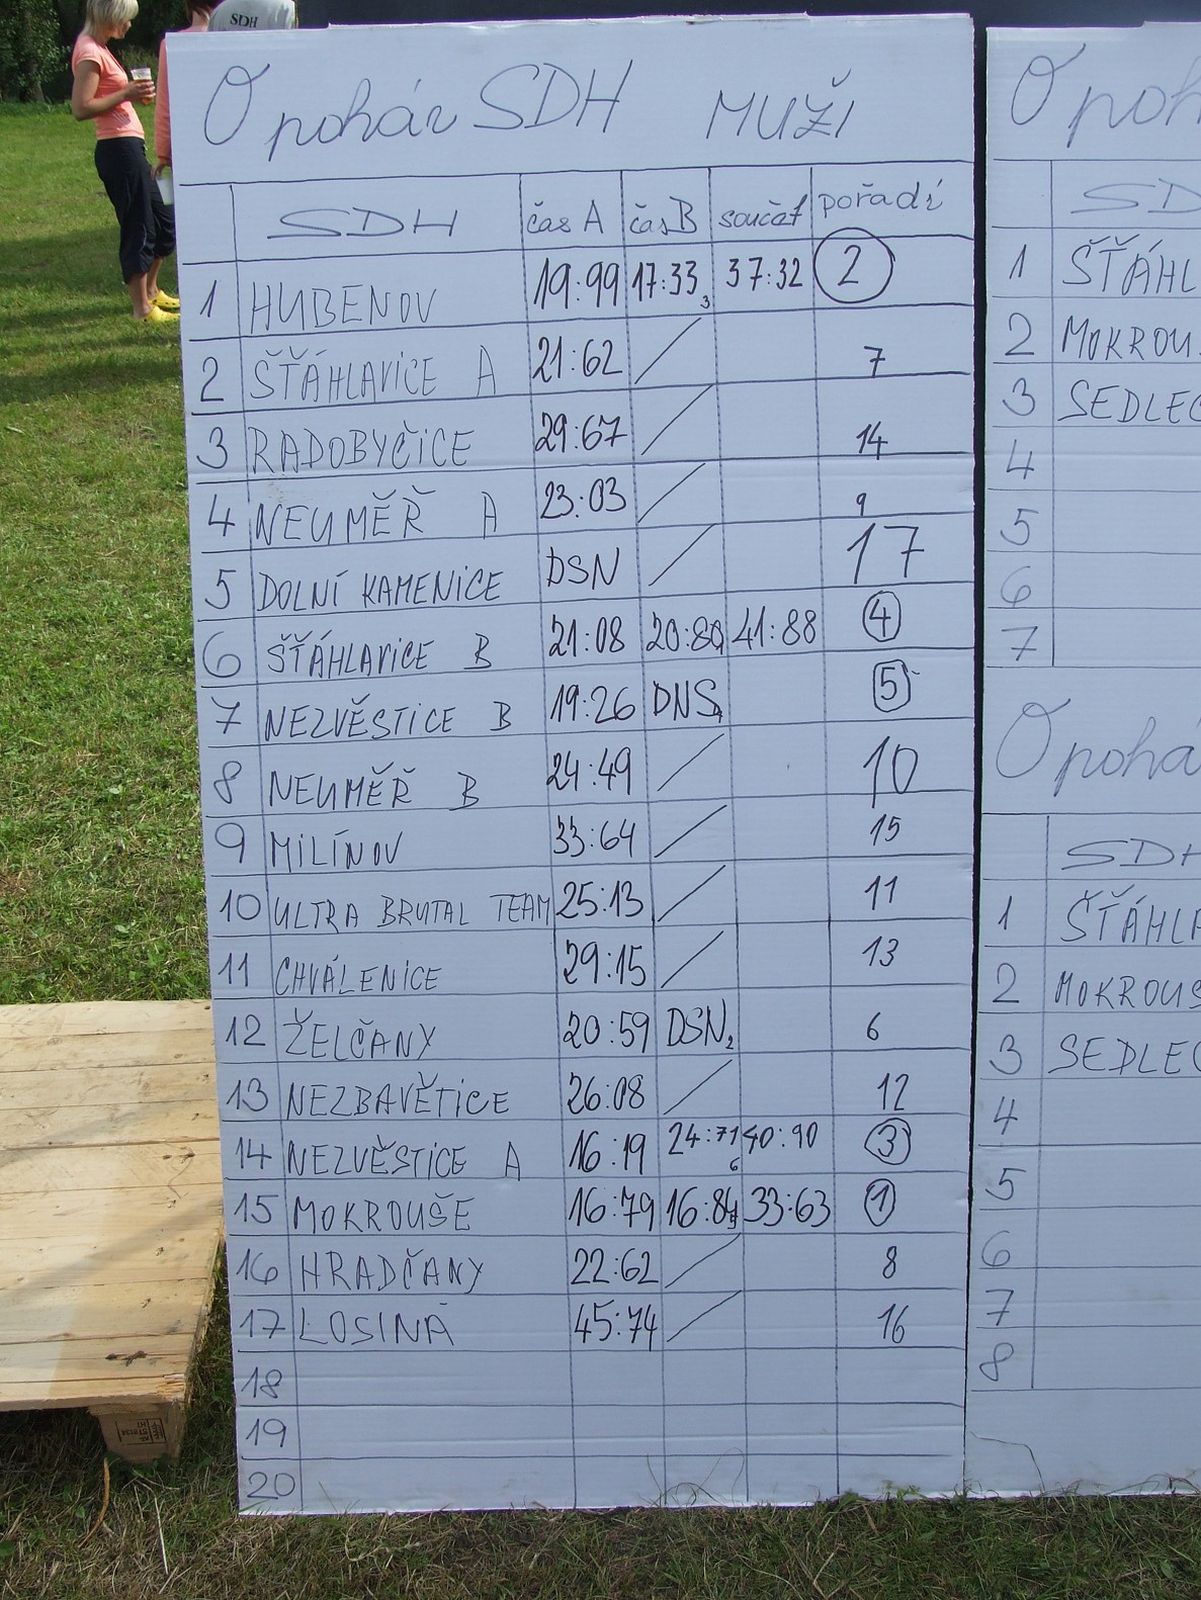 SDH
O pohár SDH MUŽI
SDH čas A čas B součet pořadí
1 HUBENOV 19:99 17:33 3 37:32 2
2 ŠŤÁHLAVICE A 21:62 / 7
3 RADOBYČICE 29:67 / 14
4 NEUMĚŘ A 23:03 / 9
5 DOLNÍ KAMENICE DSN / 17
6 ŠŤÁHLAVICE B 21:08 20:80 41:88 4
7 NEZVĚSTICE B 19:26 DNS 4 5
8 NEUMĚŘ B 24:49 / 10
9 MILÍNOV 33:64 / 15
10 ULTRA BRUTAL TEAM 25:13 / 11
11 CHVÁLENICE 29:15 / 13
12 ŽELČANY 20:59 DSN 2 6
13 NEZBAVĚTICE 26:08 / 12
14 NEZVĚSTICE A 16:19 24:71 6 40:90 3
15 MOKROUŠE 16:79 16:84 33:63 1
16 HRADČANY 22:62 / 8
17 LOSINÁ 45:74 / 16
18
19
20
O poh
SD
1 ŠŤÁHL
2 MOKROU
3 SEDLEC
4
5
6
7
O pohá
SDH
1 ŠŤÁHLA
2 MOKROUS
3 SEDLEC
4
5
6
7
8